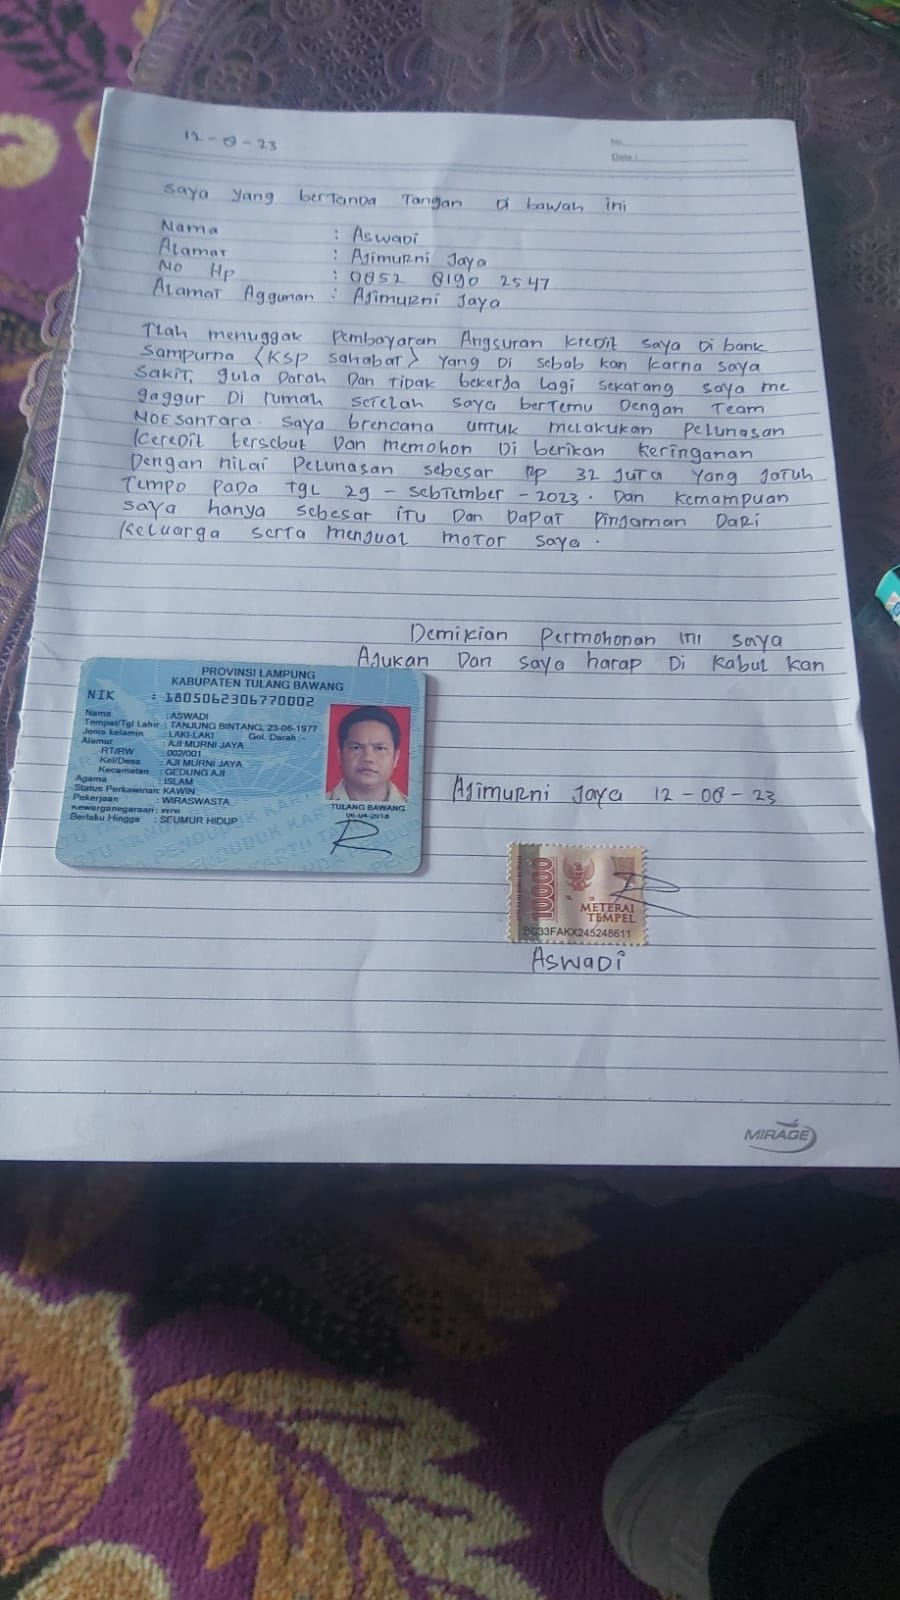 12-8-23
No.
Date :
saya yang bertanda Tangan di bawah ini
Nama : Aswadi
Alamat : Ajimurni Jaya
No Hp : 0852 8190 2547
Alamat Aggunan : Ajimurni Jaya
Tlah menuggak Pembayaran Angsuran kredit saya di bank
Sampurna (KSP Sahabat) yang di sebab kan karna saya
Sakit, gula Darah Dan Tidak bekerja lagi sekarang saya me
gaggur Di rumah setelah saya bertemu Dengan Team
NOESantara. saya brencana untuk melakukan pelunasan
Keredit tersebut Dan memohon Di berikan keringanan
Dengan nilai pelunasan sebesar Rp 32 Juta yang Jatuh
Tempo pada Tgl 29 - Sebtember - 2023. Dan Kemampuan
saya hanya sebesar itu Dan Dapat pinjaman Dari
Keluarga serta menjual motor saya.
Demikian Permohonan ini saya
Ajukan Dan saya harap Di Kabul kan
PROVINSI LAMPUNG
KABUPATEN TULANG BAWANG
NIK : 1805062306770002
Nama : ASWADI
Tempat/Tgl Lahir : TANJUNG BINTANG, 23-06-1977
Jenis kelamin : LAKI-LAKI Gol. Darah :-
Alamat : AJI MURNI JAYA
RT/RW : 002/001
Kel/Desa : AJI MURNI JAYA
Kecamatan : GEDUNG AJI
Agama : ISLAM
Status Perkawinan: KAWIN
Pekerjaan : WIRASWASTA
Kewarganegaraan: WNI
Berlaku Hingga : SEUMUR HIDUP
TULANG BAWANG
06-04-2018
Ajimurni Jaya 12-08-23
10000
METERAI
TEMPEL
BC33FAKX245248611
Aswadi
MIRAGE